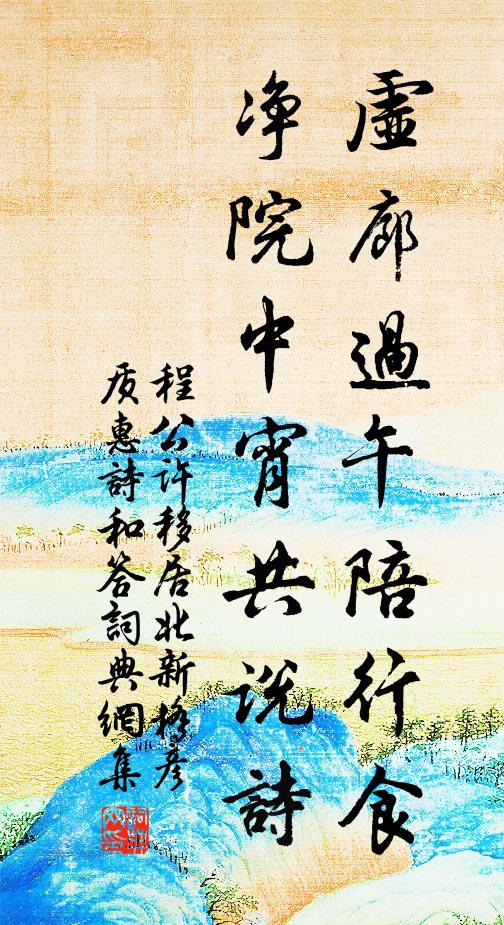 虛廊過午陪行食
淨院中宵共說詩
程公許移居北新橋彥
质惠詩和答詞典網集